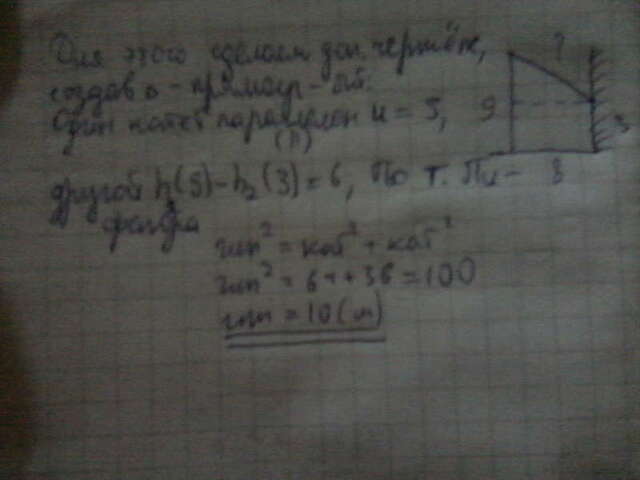 Для этого сделаем доп. чертёж,
создав □ - прямоуг -
Один катет параллелен и = 5,
(П)
другой h₁(9) - h₂(3) = 6, По т. Пи-
фагора
гип² = кат² + кат²
гип² = 64 + 36 = 100
гип = 10 (м)
?
9
3
8